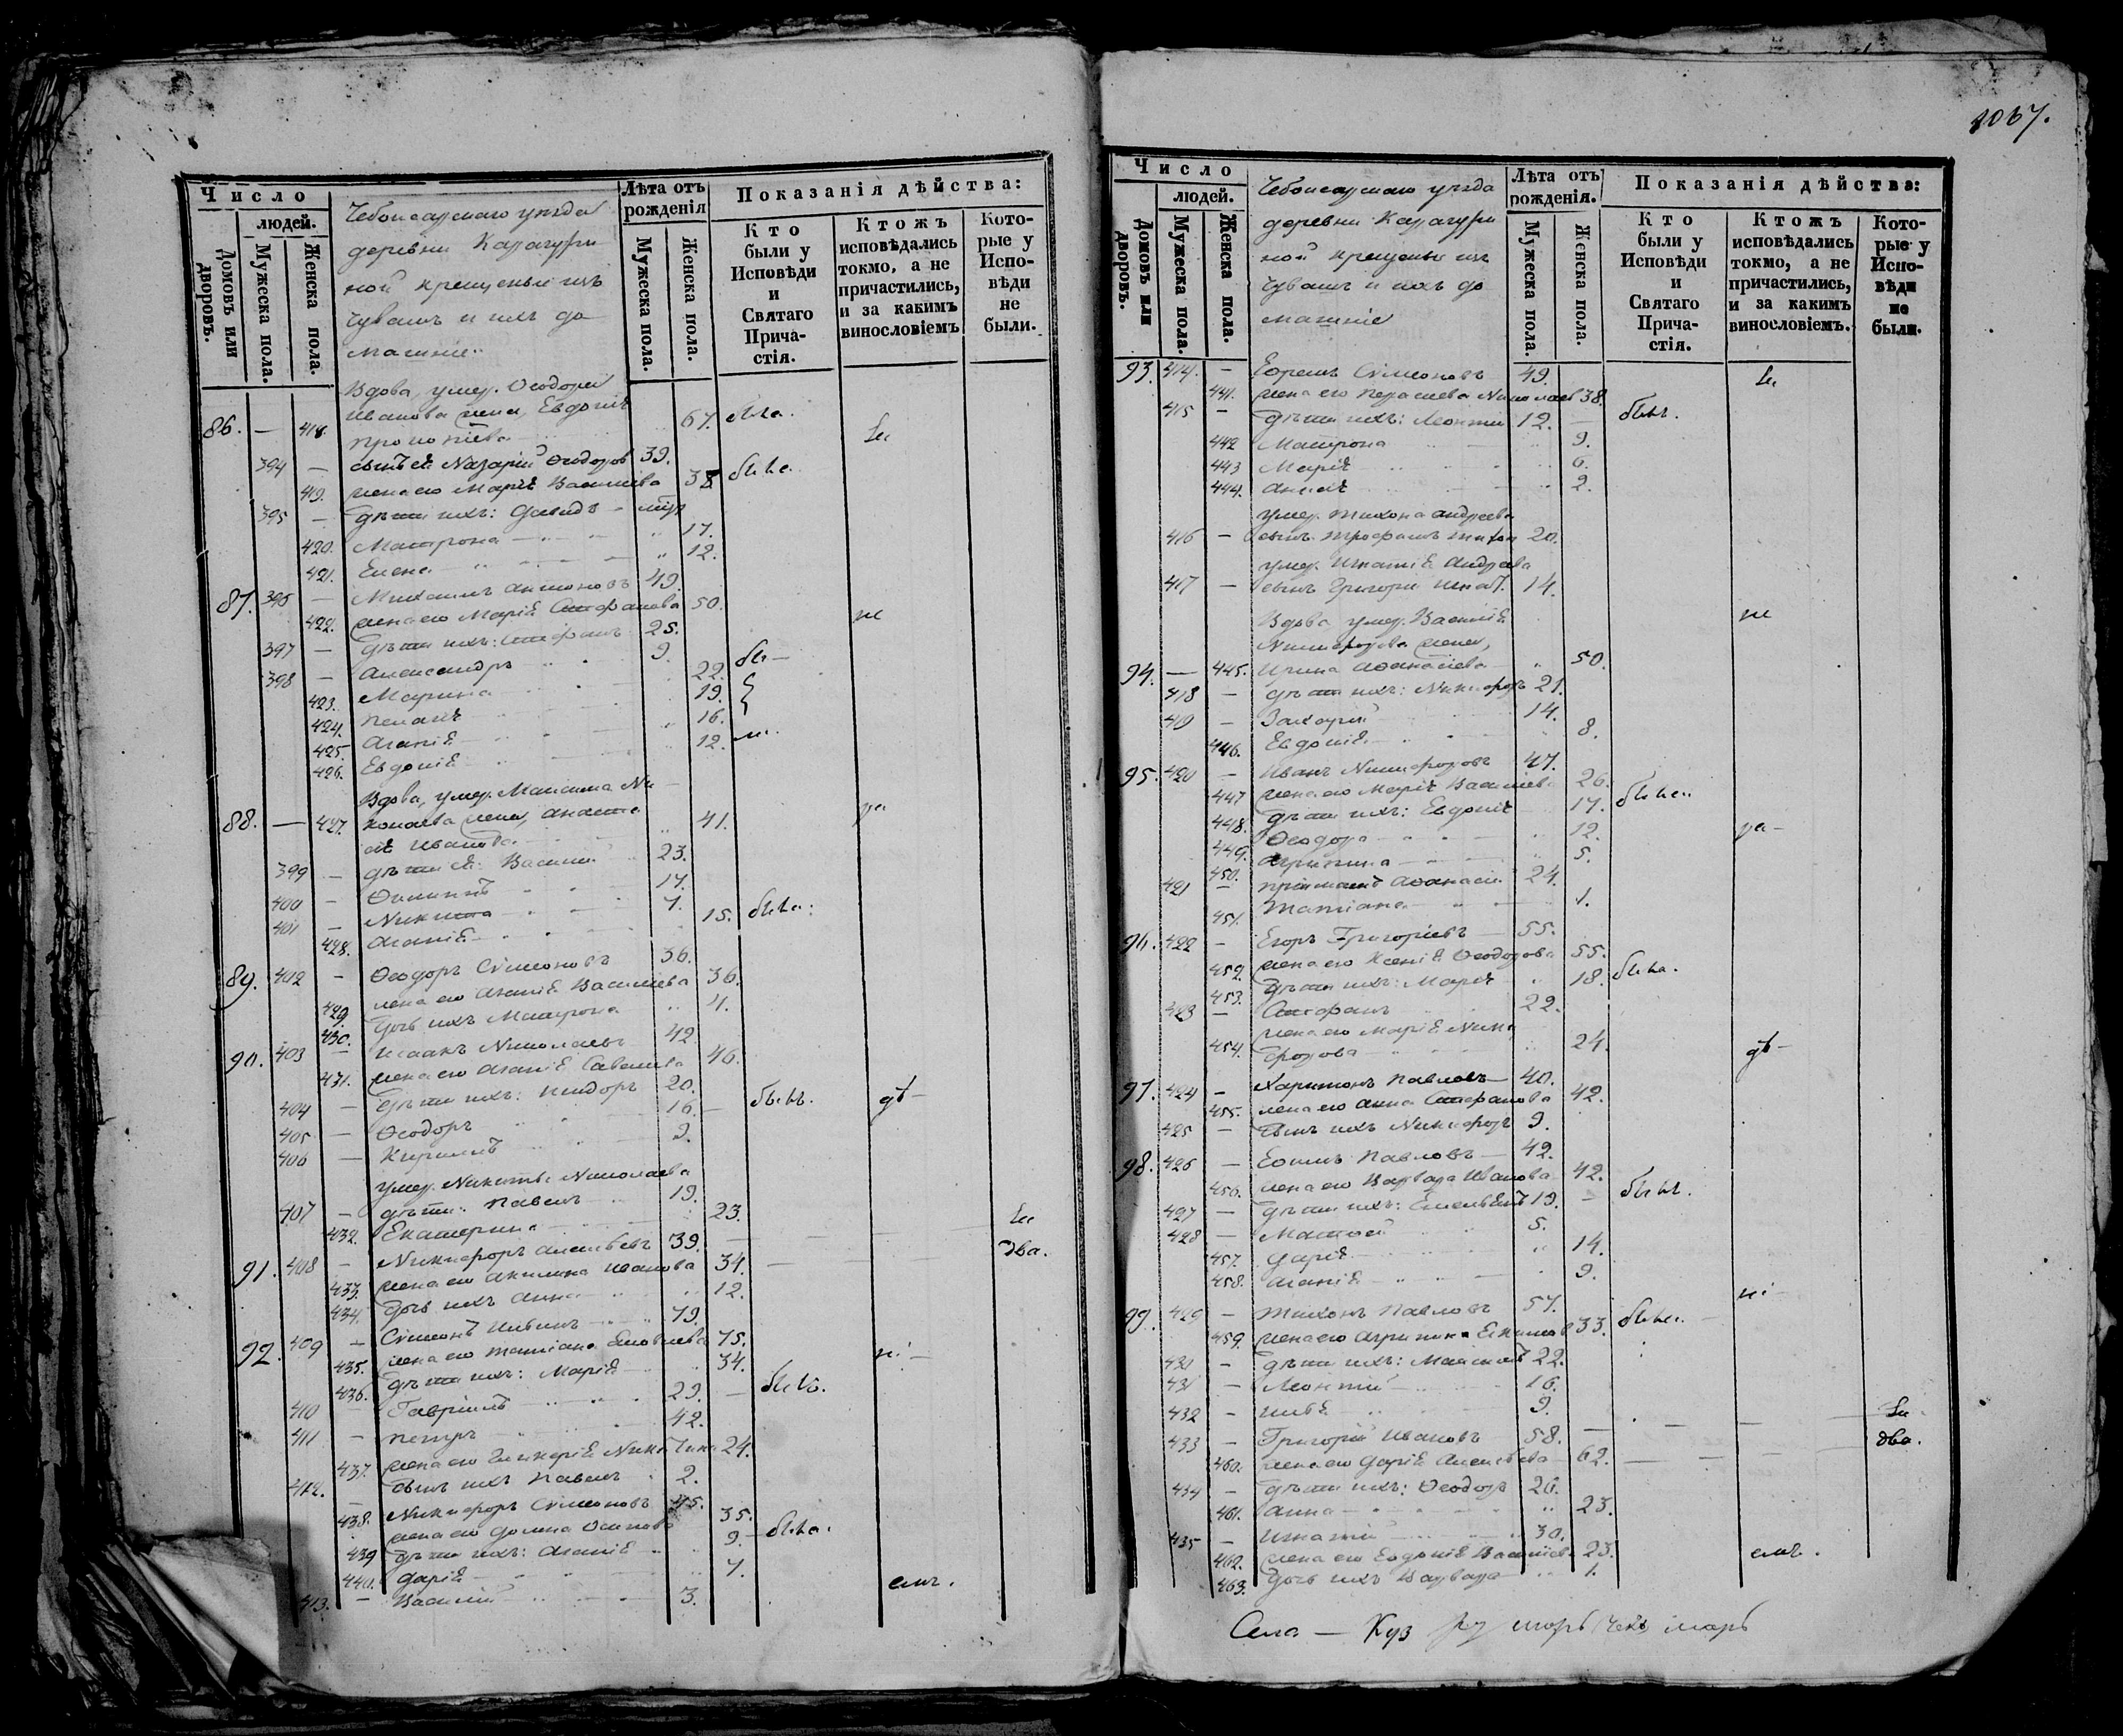 1037.
Число
людей.
Домовъ или дворовъ.
Мужеска пола.
Женска пола.
Чебоксарскаго уѣзда
деревни Карагури
ной крещеные изъ
Чувашъ и ихъ до
машніе.
Лѣта отъ рожденія
Мужеска пола.
Женска пола.
Показанія дѣйства:
Кто были у Исповѣди и Святаго Прича- стія.
Ктожъ исповѣдались токмо, а не причастились, и за какимъ винословіемъ.
Кото- рые у Испо- вѣди не были.
Вдова, умер. Ѳеодора
86. — 418. Иванова жена, Евдокія 67. была.
Прокопіева
394 — сынъ ея Назарій Ѳеодоров 39.
419. жена его Марія Василіева 38
395 — дѣти ихъ: Давидъ
420. Матрона 17.
421. Елена 12.
87. 396 — Михаилъ Антоновъ 49
422. жена его Марія Стефанова 50.
397 — дѣти ихъ: Стефанъ 25.
398 — Александръ 9.
423. Марина 22.
424. Пелагія 19.
425. Агапія 16.
426. Евдокія 12.
Вдова, умер. Максима Ни
88. — 427. колаева жена, Анаста 41.
сія Иванова
399 — дѣти ея: Василій 23.
400 — Филиппъ 17.
401 — Никита 7.
428. Агапія 15.
89. 402 — Ѳеодоръ Сѵмеоновъ 36.
429. жена его Агапія Василіева 36.
430. дочь ихъ Матрона 4.
90. 403 — Исаакъ Николаевъ 42
431. жена его Агапія Савельева 46.
404 — дѣти ихъ: Исидоръ 20.
405 — Ѳеодоръ 16.
406 — Кириллъ 9.
умер. Никиты Николаева
407 — дѣти: Павелъ 19.
432. Екатерина 23.
91. 408 — Никифоръ Алексѣевъ 39.
433. жена его Акилина Иванова 34.
434. дочь ихъ Анна 12.
два.
92. 409 — Сѵмеонъ 79.
435. жена его Татіана 75.
436. дѣти ихъ: Марія 34.
410 — Гавріилъ 29.
411 — Петръ 42.
437. жена его Гликерія Никитина 24.
412. — сынъ ихъ Павелъ 2.
Никифоръ Сѵмеоновъ 45.
438. жена его Домна Осипова 35.
439 дѣти ихъ: Агапія 9.
440. Дарія 7.
413. — Василій 3.
Число
людей.
Домовъ или дворовъ.
Мужеска пола.
Женска пола.
Чебоксарскаго уѣзда
деревни Карагури
ной крещеные изъ
Чувашъ и ихъ до
машніе
Лѣта отъ рожденія.
Мужеска пола.
Женска пола.
Показанія дѣйства:
Кто были у Исповѣди и Святаго Прича- стія.
Ктожъ исповѣдались токмо, а не причастились, и за какимъ винословіемъ.
Кото- рые у Испо- вѣди не были.
93. 414. — Ефремъ Сѵмеоновъ 49.
441. жена его Параскева Николаев 38.
415 — дѣти ихъ: Леонтій 12.
442 Матрона 9.
443 Марія 6.
444. 2.
умер. Тихона Андреева
416 — сынъ Трофимъ Тихон 20.
умер. Игнатія Андреева
417 — сынъ Григорій Игнат. 14.
Вдова умер. Василія
Никифорова жена,
94. — 445. Ирина Аѳанасіева 50.
418 — дѣти ихъ: Никифоръ 21.
419 — Захарій 14.
446. Евдокія 8.
95. 420 — Иванъ Никифоровъ 47.
447 жена его Марія Василіева 26.
448. дѣти ихъ: Евдокія 17.
449. Ѳеодора 12.
450. Агрипина 5.
421 — Аѳанасій 24.
451. Татіана 1.
96. 422 — Егоръ Григорьевъ 55.
452. жена его Ксенія Ѳеодорова 55.
453. дѣти ихъ: Марія 18.
423 — Стефанъ 22.
жена его Марія Ники
454. форова 24.
97. 424 — Харитонъ Павловъ 40.
455. жена его Анна Стефанова 42.
425 — сынъ ихъ Никифоръ 9.
98. 426 — Еѳимъ Павловъ 42.
456. жена его Варвара Иванова 42.
427 — дѣти ихъ: Емельянъ 19.
428 — Матѳей 5.
457. Дарія 14.
458. Агапія 9.
99. 429 — Тихонъ Павловъ 57.
459. жена его Агрипина 33.
430 — дѣти ихъ: Максимъ 22.
431 — Леонтій 16.
432 — Илья 9.
433 — Григорій Ивановъ 58.
460. жена его Дарія Алексѣева 62.
два.
434 — дѣти ихъ: Ѳеодоръ 26.
461. Анна 23.
435 — Игнатій 30.
462. жена его Евдокія Василіева 23.
463. дочь ихъ Варвара 1.
Села — Куз